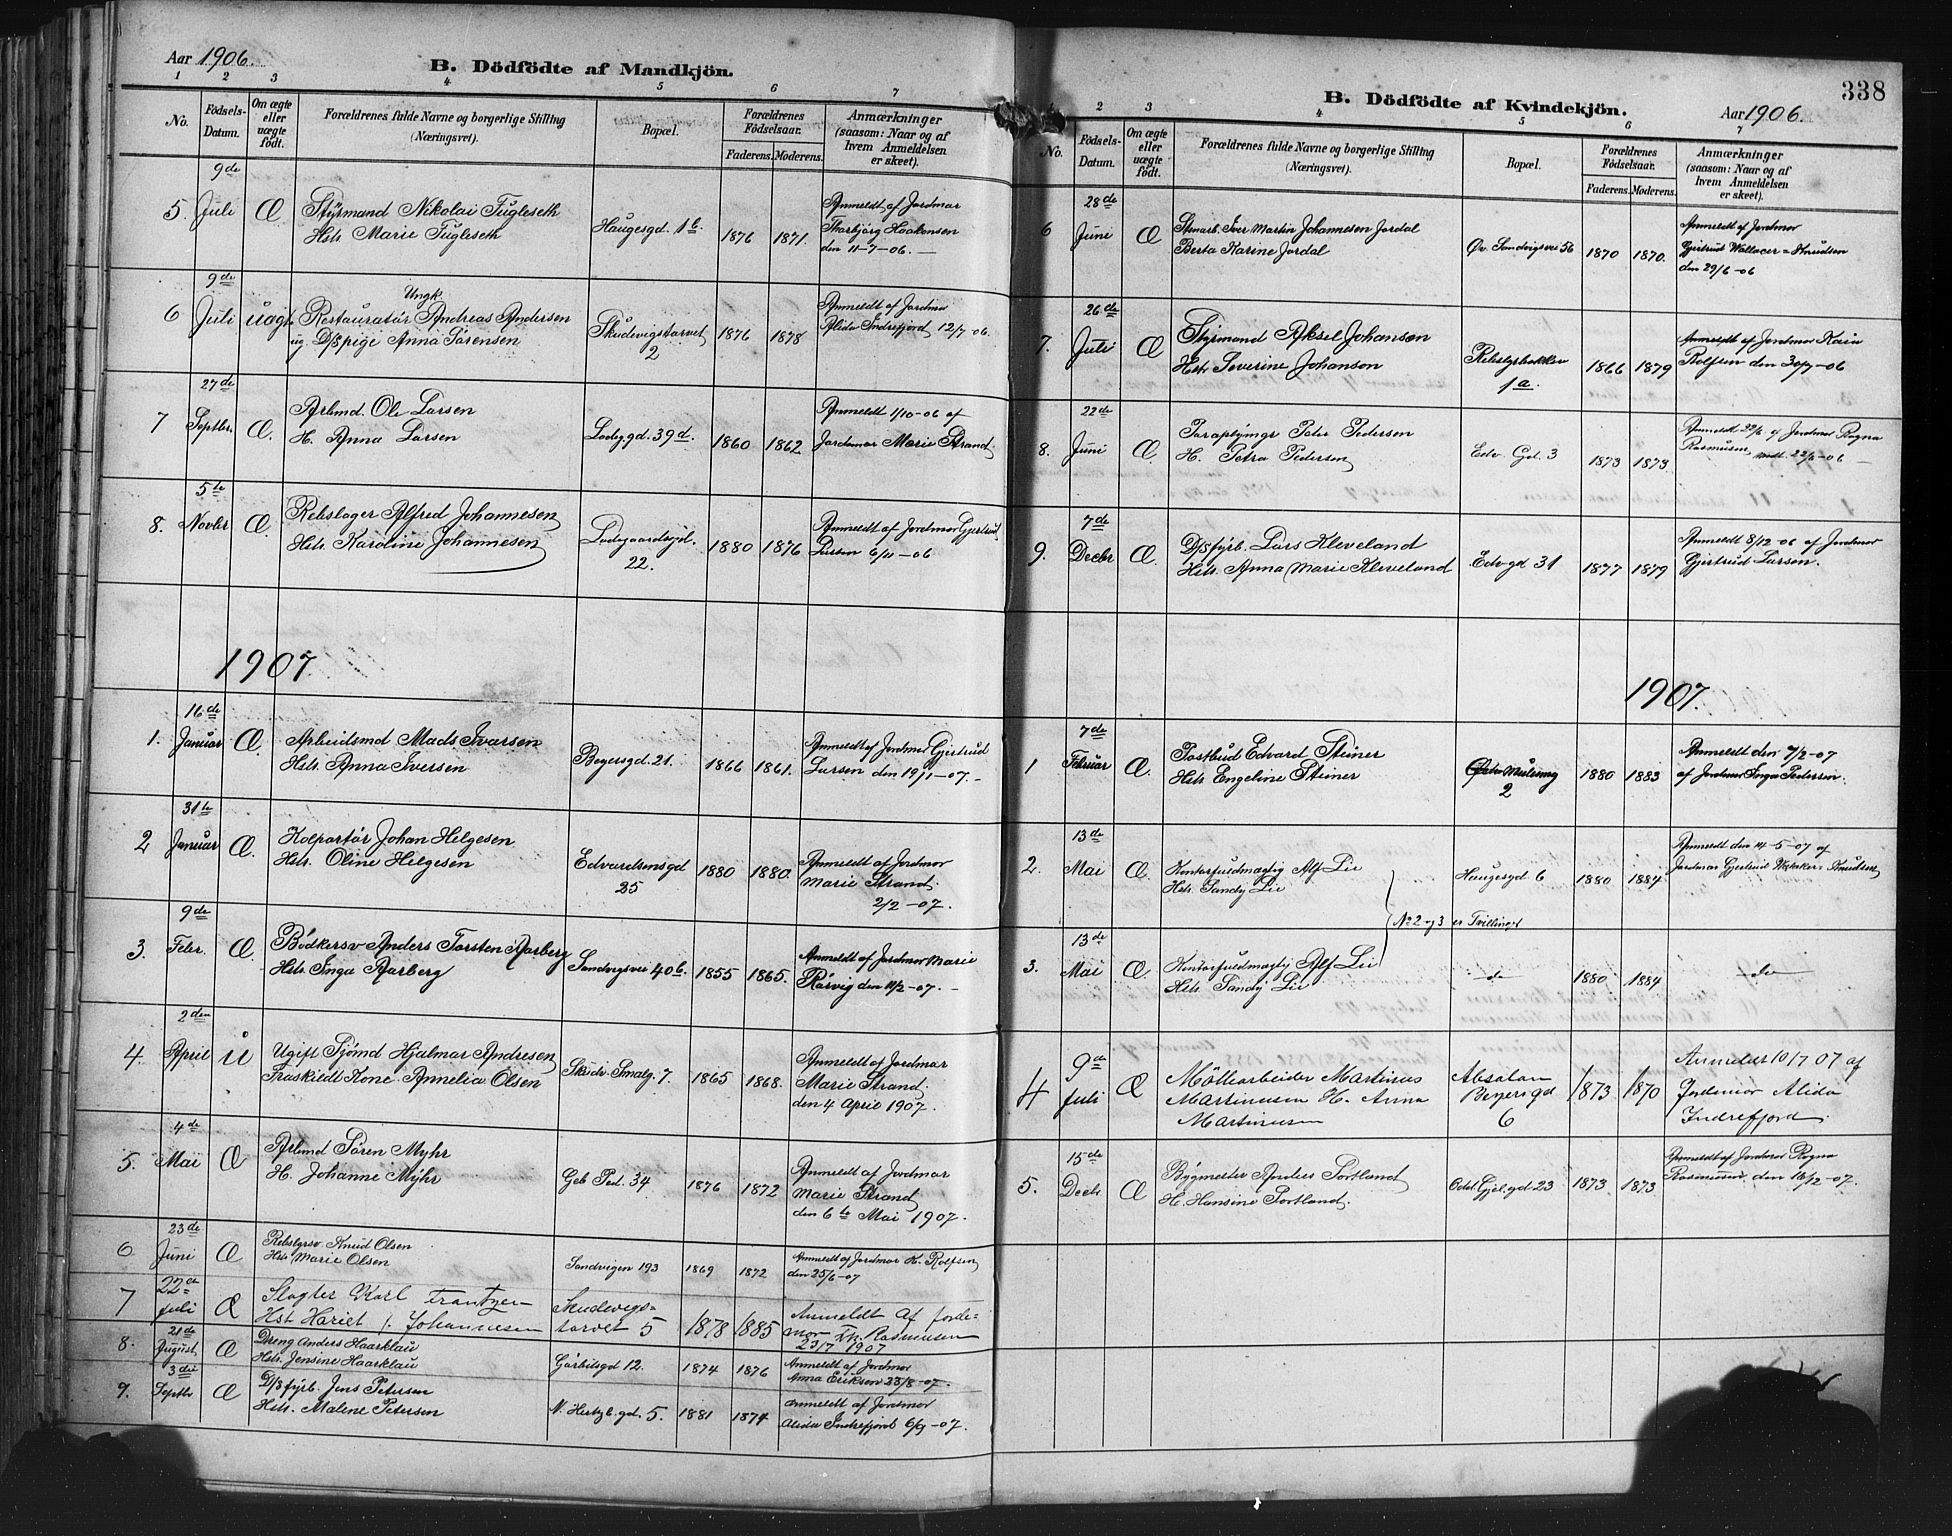 Aar 1906.
B. Dödfödte af Mandkjön.
1 2 3 4 5 6 7
No.
Födsels-Datum.
Om ægte eller uægte födt.
Forældrenes fulde Navne og borgerlige Stilling (Næringsvei).
Bopæl.
Forældrenes Födselsaar.
Faderens. Moderens.
Anmærkninger (saasom: Naar og af hvem Anmeldelsen er skeet).
9de
5. Juli Æ Styrmand Nikolai Fugleseth
Hstr. Marie Fugleseth
Haugesgd. 1b. 1876 1871.
Anmeldt af Jordmor
Thorbjörg Haakensen
den 11-7-06.
9de
6 Juli uægt. Ungk. Restauratör Andreas Andersen
ug. D/spige Anna Sörensen
Skudevigstorvet
2
1876 1878
Anmeldt af Jordmor
Alida Indrefjord 12/7 06.
27de
7 Septbr. Æ. Arbmd. Ole Larsen
H. Anna Larsen
Ladegd. 39d. 1860 1862
Anmeldt 1/10-06 af
Jordemor Marie Strand
5te
8. Novbr Æ. Rebslager Alfred Johannesen
Hstr. Karoline Johannesen
Ladegaardsgd.
22.
1880 1876
Anmeldt af Jordmor Gjertrud
Larsen 6/11-06
1907
16de
1. Januar Æ. Arbeidsmd Mads Ivarsen
Hstr. Anna Iversen
Beyersgd. 21. 1866 1861.
Anmeldt af Jordmor Gjertrud
Larsen den 19/1-07.
31te
2 Januar Æ. Kolportör Johan Helgesen
Hstr. Oline Helgesen
Edvardsensgd
25
1880 1880.
Anmeldt af Jordmor
Marie Strand.
2/2-07.
9de
3. Febr. Æ. Bödkersv Anders Torsten Aarberg
Hstr. Inga Aarberg
Sandvigsvei 40b. 1855 1865.
Anmeldt af Jordmor Marie
Rörvig den 11/2-07.
2den
4. April U Ugift Sjömd Hjalmar Andresen
Fraskildt Kone Annelia Olsen
Skudv. Smalg. 7. 1865 1868.
Anmeldt af Jordmor
Marie Strand.
den 4 April 1907.
4de
5. Mai Æ Arbmd Sören Myhr
H. Johanne Myhr
Geb Ped. 34 1876 1872
Anmeldt af Jordmor
Marie Strand
den 6te Mai 1907.
23de
6 Juni Æ Rebslgrsv Knud Olsen
Hstr Marie Olsen
Sandvigen 193 1869 1872
Anmeldt af Jordmor K. Rolfsen
den 25/6-07
22de
7 Juli Æ Slagter Karl Frantzen
Hst Hariet f. Johannesen
Skudevigs-
torvet 5
1878 1885
Anmeldt af Jorde-
mor Rasmusen
23/7 1907
21de
8. August. Æ Dreng Anders Haarklau
Hstr. Jensine Haarklau
Görbitsgd 12. 1874 1876
Anmeldt af Jordmor
Anna Eriksen 23/8-07.
3die
9. Septbr Æ D/sfyrb. Jens Petersen
Hstr. Malene Petersen
N. Hertzb.gd. 5. 1881 1874
Anmeldt af Jordmor
Alida Indrefjord 6/9-07.
338
B. Dödfödte af Kvindekjön.
Aar 1906.
2 3 4 5 6 7
No.
Födsels-Datum.
Om ægte eller uægte födt.
Forældrenes fulde Navne og borgerlige Stilling (Næringsvei).
Bopæl.
Forældrenes Födselsaar.
Faderens. Moderens.
Anmærkninger (saasom: Naar og af hvem Anmeldelsen er skeet).
28de
6 Juni Æ Stenarb. Iver Martin Johannesen Jordal
Berta Karine Jordal
Øv. Sandvigsvei 56 1870 1870.
Anmeldt af Jordmor
Gjertrud Wallacer=Knudsen
den 29/6-06
26de
7. Juli Æ Styrmand Aksel Johanson
Hstr Severine Johanson
Rebslgrbakken
1a.
1866 1879
Anmeldt af Jordmor Karin
Rolfsen den 30/7-06
22de
8. Juni Æ. Paraplymgr Peter Pedersen
H. Petra Pedersen
Edv. Gd. 3 1873 1873
Anmeldt af Jordmor Ragna
Rasmusen
7de
9. Decbr Æ. D/sfyrb. Lars Kleveland
Hstr. Anna Marie Kleveland
Edv gd 31 1877 1879
Anmeldt 8/12 06 af Jordmor
Gjertrud Larsen.
1907.
7de
1 Februar Æ. Postbud Edvard Steiner
Hstr Engeline Steiner
2
1880 1883
Anmeldt den 9/2-07
af Jordmor Inga Pedersen.
13de
2. Mai Æ. Kontorfuldmægtig Alf Lie
Hstr. Sandy Lie
Haugesgd 6 1880 1884
Anmeldt den 14-5-07 af
Jordmor Gjertrud Wallaker=Knudsen
No 2 og 3 er Tvillinger
13de
3. Mai Æ Kontorfuldmægtig Alf Lie
Hstr. Sandy Lie
do 1880 1884 do
9de
4 Juli Æ Möllearbeider Martinus
Martinusen H. Anna
Martinusen
Absalon
Beyersgd
6
1873 1870
Anmeldt 10/7 07 af
Jordemor Alida
Indrefjord
15de
5. Decbr Æ Bygmester Anders Sortland
H. Hansine Sortland.
Odd. Gjel.gd 23 1873 1873
Anmeldt af Jordmor Ragna
Rasmusen den 16/12-07.